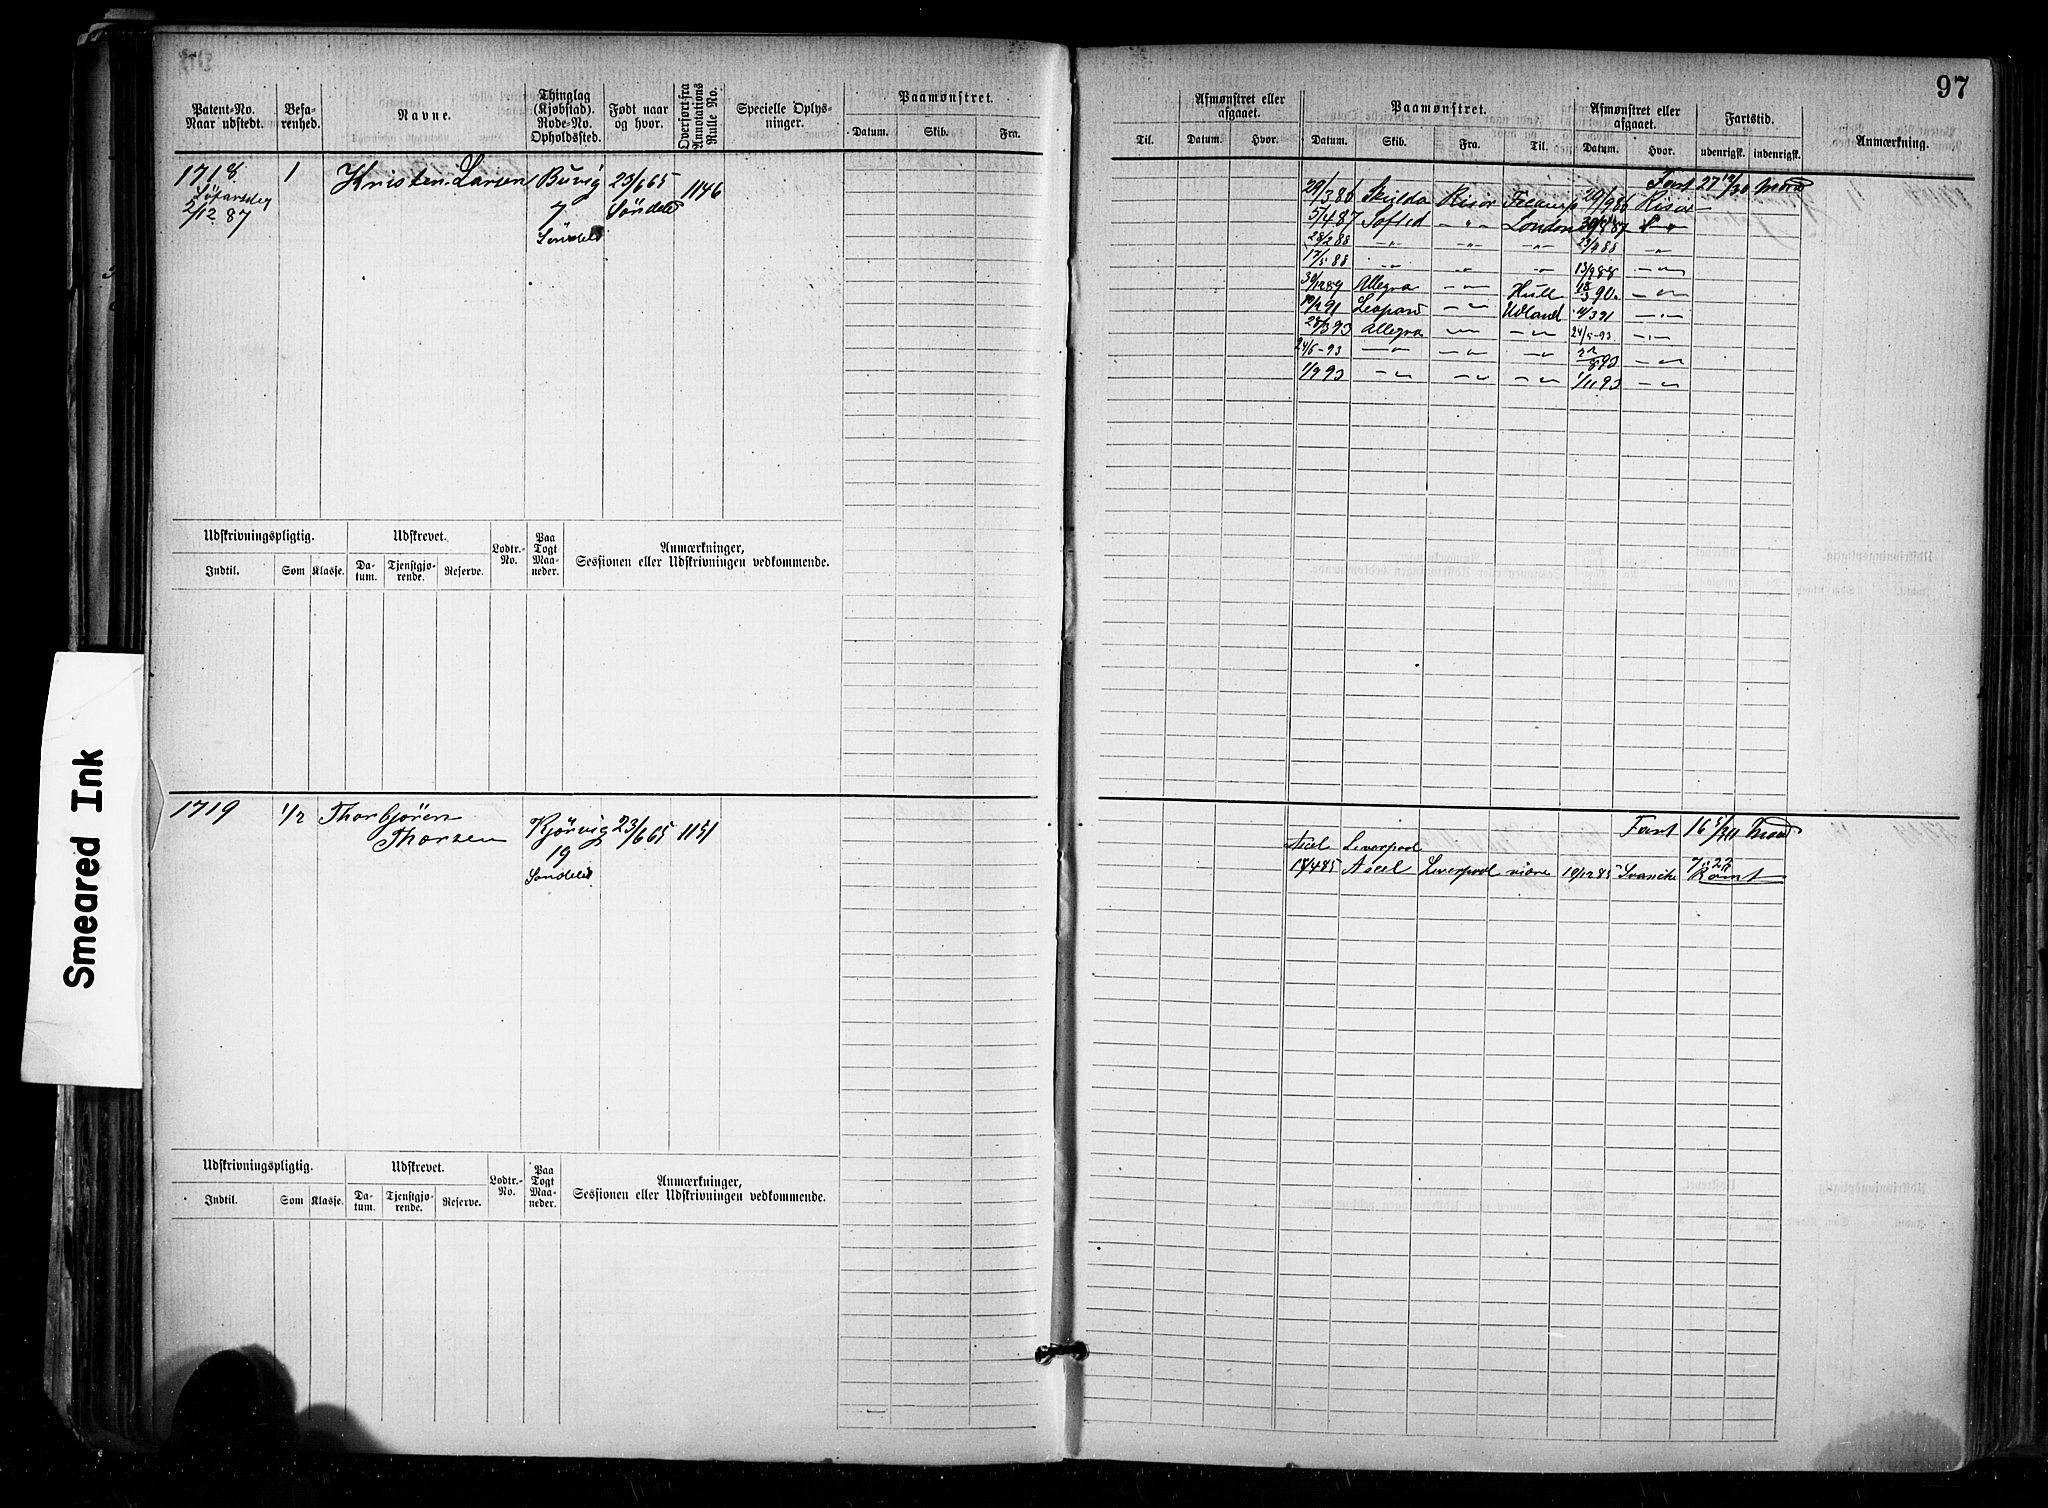 97
Patent=No. Naar udstedt.
Befa-renhed.
Navne.
Thinglag (Kjøbstad). Rode=No. Opholdssted.
Født naar og hvor.
Overført fra Annotations Rulle No.
Specielle Oplys-ninger.
Paamønstret.
Datum.
Skib.
Fra.
Afmønstret eller afgaaet.
Til.
Datum.
Hvor.
Paamønstret.
Datum.
Skib.
Fra.
Til.
Afmønstret eller afgaaet.
Datum.
Hvor.
Fartstid.
udenrigsk.
indenrigsk.
Anmærkning.
1718
2/12 87
1
Kristen Larsen
Buvig
7
Søndeled
23/6 65
Søndeled
1146
Fart 27 12/30 Mdr
29/3 86 Skulda Risør Fecamp 29/9 86 Risør
5/4 87 Softid - " - London
28/2 88 - " - - " - - " - 23/4 88 - " -
17/5 88 - " - - " - - " - 13/9 88 - " -
30/12 89 Allegra - " - Hull 18/3 90 - " -
10/2 91 Leopard - " - Udland 4/3 91 - " -
28/3 93 Allegra - " - - " - 24/5-93 - " -
24/6-93 - " - - " - - " - 22/8 93 - " -
1/9 93 - " - - " - - " - 1/11 93 - " -
Udskrivningspligtig.
Udskrevet.
Lodtr.=No.
Paa Togt Maa-neder.
Anmærkninger, Sessionen eller Udskrivningen vedkommende.
Indtil.
Som
Klasse.
Da-tum.
Tjenstgjø-rende.
Reserve.
1719
1/2
Thorbjören
Thorsen
Kjørvig
19
Søndeled
23/6 65
1151
Fart 16 5/30 Mdr
Axel Liverpool
18/4 85 Axel Liverpool videre 19/12 85
Rømt
Udskrivningspligtig.
Udskrevet.
Lodtr.=No.
Paa Togt Maa-neder.
Anmærkninger, Sessionen eller Udskrivningen vedkommende.
Indtil.
Som
Klasse.
Da-tum.
Tjenstgjø-rende.
Reserve.
Smeared Ink